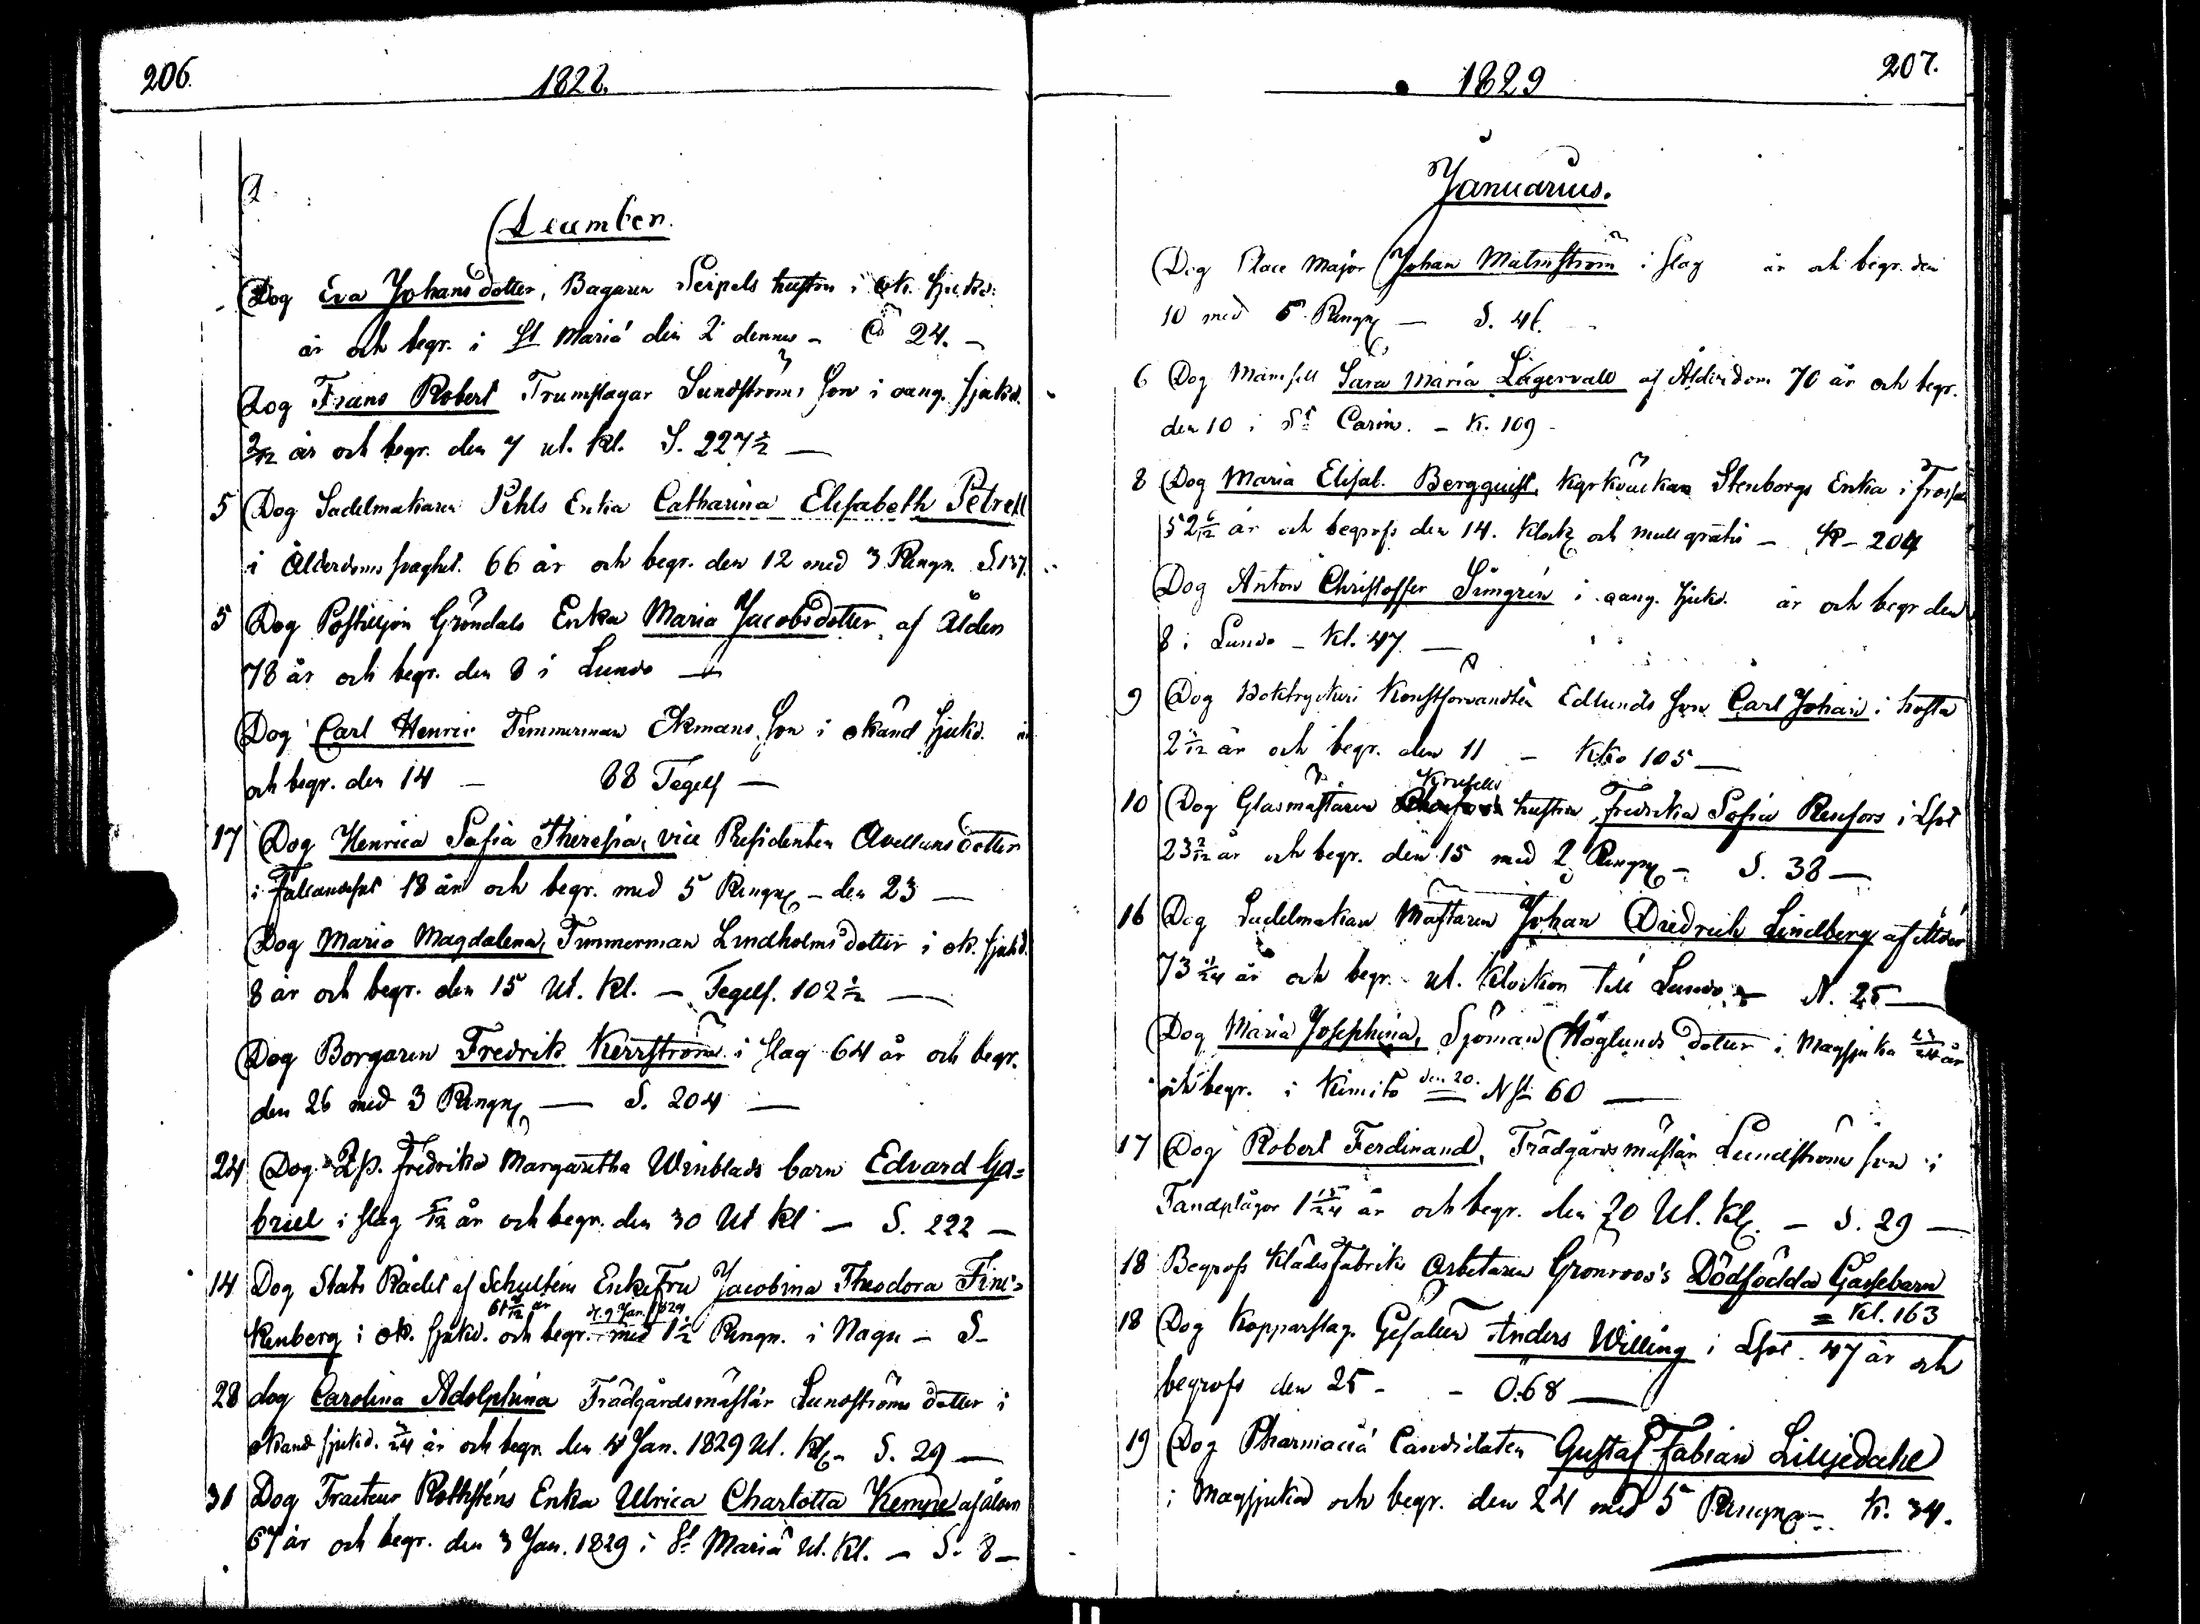 206.
1828.
December.
Dog Eva Johansdotter, Bagaren Seipels hustru i ok. sjukd:
år och begr. i St Mariæ den 2 dennes - 24. -
Dog Frans Robert Trumslagar Sundströms son i oang. sjukd.
2/12 år och begr. den 7 ut. Kl. S. 227 1/2 —
5 Dog Sadelmakaren Pihls Enka Catharina Elisabeth Petrell
i Ålderdoms svaghet. 66 år och begr. den 12 med 3 Ringn. S. 137.
5 Dog Postiljon Gröndals Enka Maria Jacobsdotter, af Ålder
78 år och begr. den 8 i Lundo —
Dog Carl Henric Timmerman Ekmans son i okänd sjukd. år
och begr. den 14 — 88 Tegelf —
17 Dog Henrica Sofia Theresia, vice Presidenten Avellans dotter
i Fallandsot 18 år och begr. med 5 Ringn - den 23 —
Dog Maria Magdalena, Timmerman Lindholms dotter i ok. sjukd.
8 år och begr. den 15 Ut. Kl. — Tegelf. 102 1/2 —
Dog Borgaren Fredrik Kerrström i slag 64 år och begr.
den 26 med 3 Ringn — S. 204 —
24 Dog Qp. Fredrika Margaretha Winblads barn Edvard Ga=
briel i slag 5/12 år och begr. den 30 Ut Kl — S. 222 —
14 Dog Stats Rådet af Schulténs EnkeFru Jacobina Theodora Finc=
kenberg i ok. sjukd. och begr. d. 9 Jan. 1829 med 1 1/2 Ringn. i Nagu — S-
28 dog Carolina Adolphina Trädgårdsmästar Lundströms dotter i
okänd sjukd. /24 år och begr. den 4 Jan. 1829 Ut. Kl - S. 29 —
31 Dog Tracteur Rothsténs Enka Ulrica Charlotta Kempe af ålder
67 år och begr. den 3 Jan. 1829 i St Mariæ Ut. Kl. — S. 8 —
1829
207.
Januarius.
Dog Place Major Johan Malmström i slag år och begr. den
10 med 5 Ringn — S. 46.
6 Dog Mamsell Sara Maria Lagervall af Ålderdom 70 år och begr.
den 10 i St Carin. - K. 109 -
8 Dog Maria Elisab. Bergquist, Kyrkväckar Stenborgs Enka i Frossa
52 6/12 år och begrofs den 14. Klock och mull gratis — K - 204
Dog Anton Christoffer Limgrén i oang. sjukd. år och begr den
8 i Lundo - Kl. 47 —
9 Dog Boktryckeri Konstförvandten Edlunds son Carl Johan i hosta
2 /12 år och begr. den 11 - Kko 105 —
10 Dog Glasmästaren Krusells hustru Fredrika Sofia Renfors i Lsot
23 2/12 år och begr. den 15 med 2 Ringn - S. 38 —
16 Dog Sadelmakare Mästaren Johan Diedrich Lindberg af Ålder
73 /24 år och begr. ut. Klockor till Lundo — N. 25 —
Dog Maria Josephina, Sjöman Höglunds dotter i Magsjuka 23/24 år
och begr. i Kimito den 20. N st 60 —
17 Dog Robert Ferdinand, Trädgårdsmästar Lundströms son i
Tandplågor 1 15/24 år och begr. den 20 Ut. Kl. — S. 29 —
18 Begrofs Klädesfabriks Arbetaren Grönroos's Dödfödda Gossebarn
= Kl. 163
18 Dog Kopparslag. Gesällen Anders Willing i Lsot. 47 år och
begrofs den 25 - - O. 68 —
19 Dog Pharmaciæ Candidaten Gustaf Fabian Lilljedahl
i Magsjukd och begr. den 24 med 5 Ringn -. K. 34.